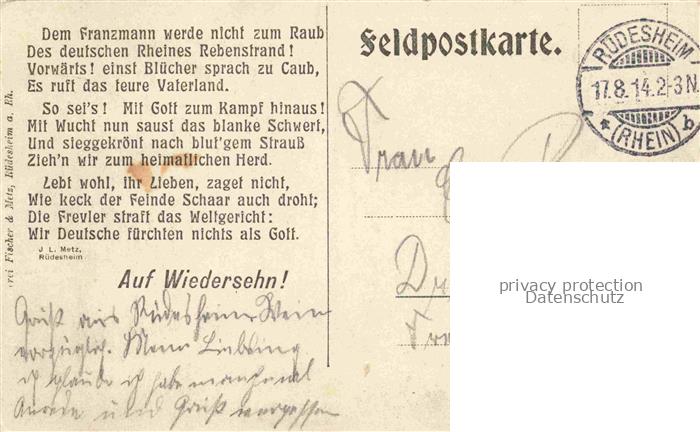 Dem Franzmann werde nicht zum Raub
Des deutschen Rheines Rebenstrand!
Vorwärts! einst Blücher sprach zu Caub,
Es ruft das teure Vaterland.
So sei's! Mit Gott zum Kampf hinaus!
Mit Wucht nun saust das blanke Schwert,
Und sieggekrönt nach blut'gem Strauß
Zieh'n wir zum heimatlichen Herd.
Lebt wohl, ihr Lieben, zaget nicht,
Wie keck der Feinde Schaar auch droht;
Die Frevler straft das Weltgericht:
Wir Deutsche fürchten nichts als Gott.
J. L. Metz,
Rüdesheim
Auf Wiedersehn!
Gruß aus Rüdesheim Wein
vorzüglich. Mein Liebling
ich glaube ich habe manchmal
Anrede und Gruß vergessen
Fischer & Metz, Rüdesheim a. Rh.
Feldpostkarte.
RÜDESHEIM
17.8.14.2-3N.
* (RHEIN) b
Frau
privacy protection
Datenschutz